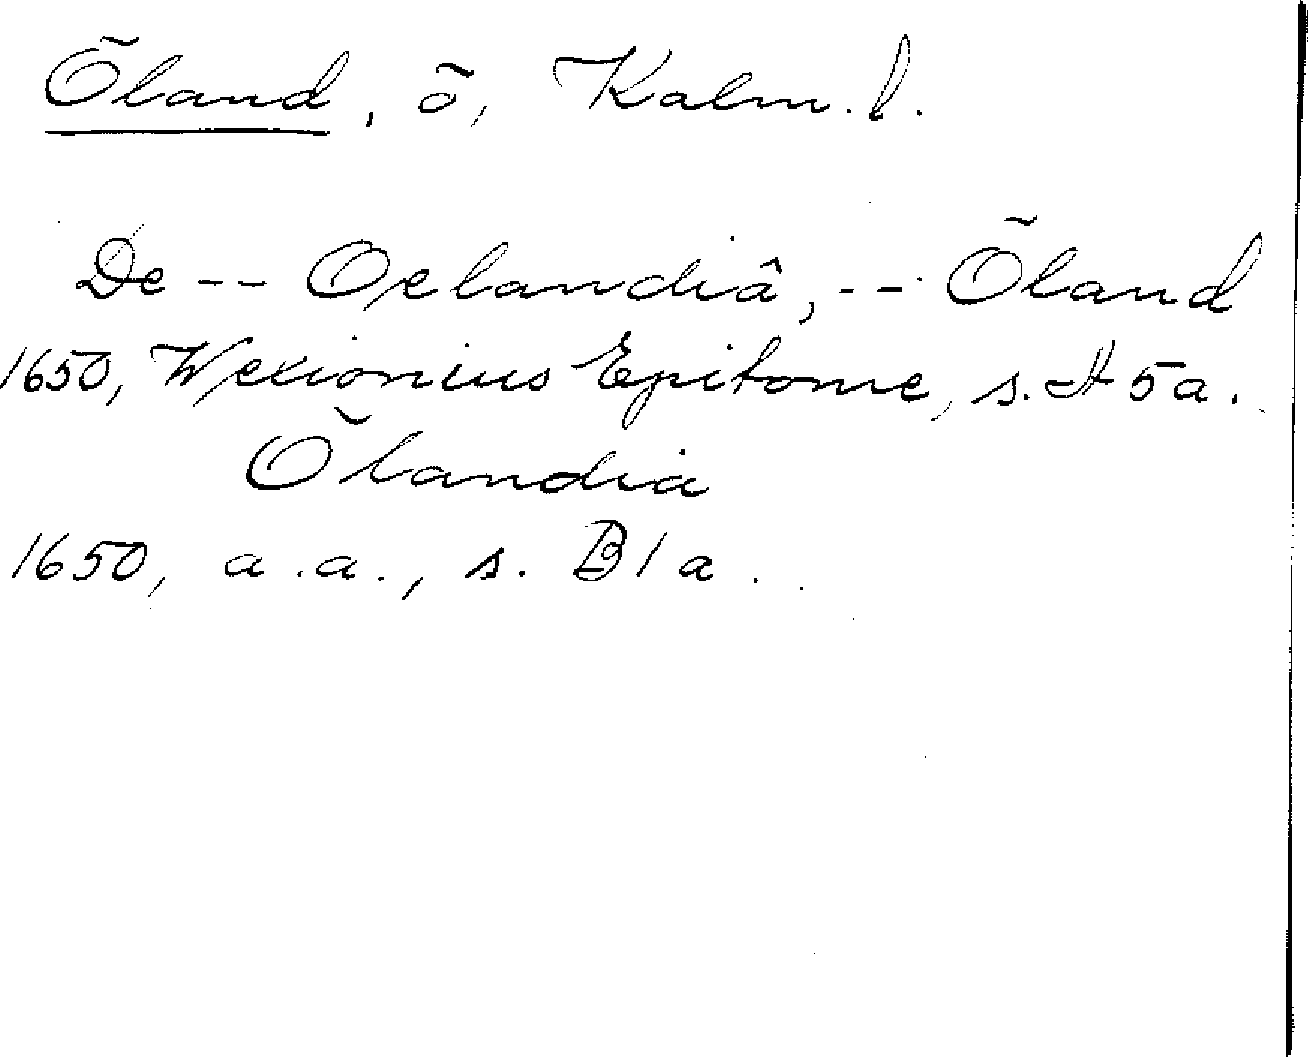 Öland, ö, Kalm. l.
De -- Oelandiâ, -- Öland
1650, Wexionius Epitome, s. A 5 a.
Ölandia
1650, a.a., s. B 1 a.